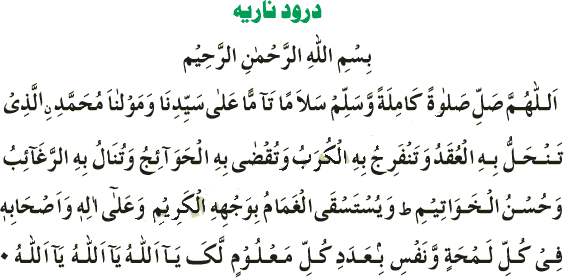 درود ناریه
بِسْمِ اللهِ الرَّحْمٰنِ الرَّحِيْمِ
اَللّٰهُمَّ صَلِّ صَلٰوةً كَامِلَةً وَّسَلِّمْ سَلَامًا تَآمًّا عَلٰى سَيِّدِنَا وَمَوْلٰنَا مُحَمَّدِنِ الَّذِىْ
تَنْحَلُّ بِهِ الْعُقَدُ وَتَنْفَرِجُ بِهِ الْكُرَبُ وَتُقْضٰى بِهِ الْحَوَآئِجُ وَتُنَالُ بِهِ الرَّغَآئِبُ
وَحُسْنُ الْخَوَاتِيْمِ ط وَيُسْتَسْقَى الْغَمَامُ بِوَجْهِهِ الْكَرِيْمِ وَعَلٰٓى اٰلِهٖ وَاَصْحَابِهٖ
فِىْ كُلِّ لَمْحَةٍ وَّنَفَسٍ بِۢعَدَدِ كُلِّ مَعْلُوْمٍ لَّكَ يَآ اَللهُ يَآ اَللهُ يَآ اَللهُ ۰